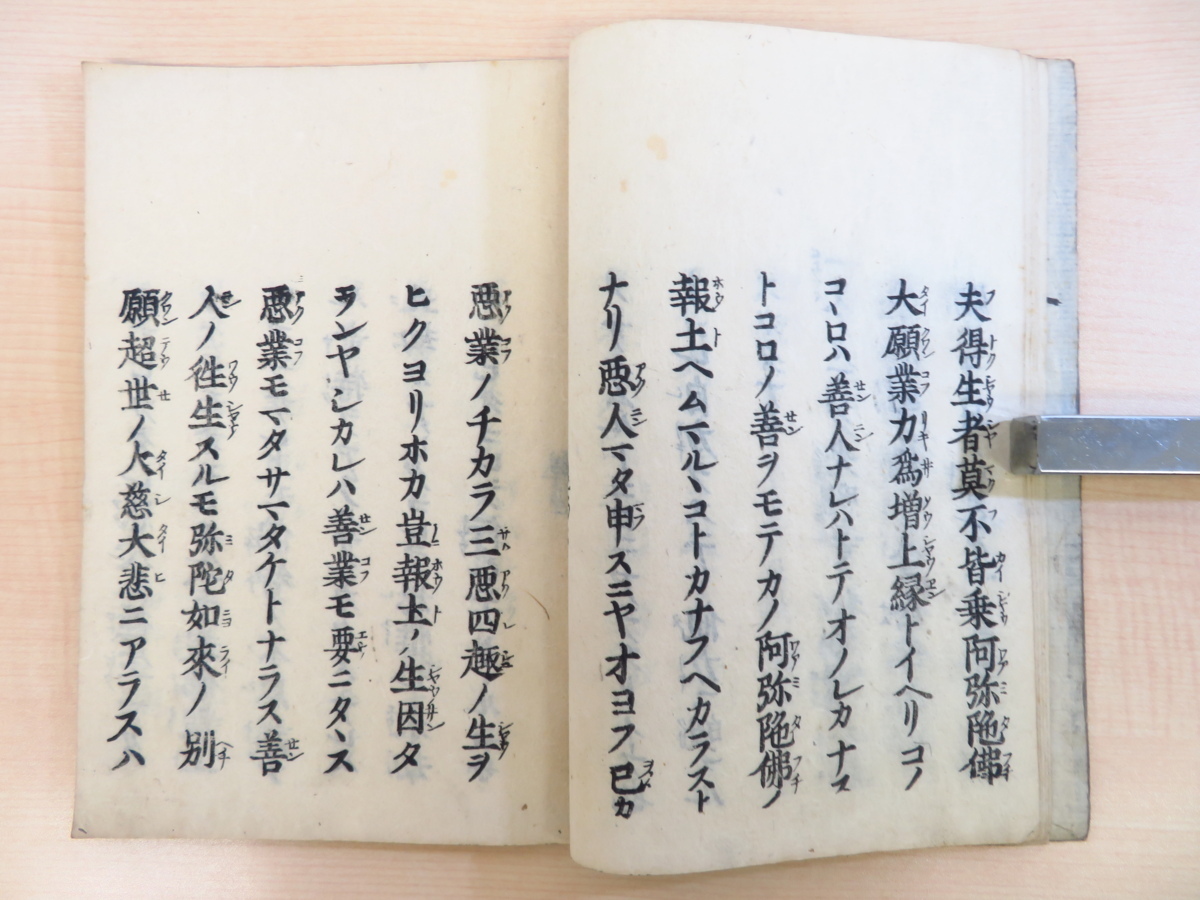 夫得生者莫不皆乗阿弥陁佛
大願業力為増上縁トイヘリコノ
コヽロハ善人ナレハトテオノレカナス
トコロノ善ヲモテカノ阿弥陁佛ノ
報土ヘムマルヽコトカナフヘカラスト
ナリ悪人マタ申スニヤオヨフ已カ
悪業ノチカラ三悪四趣ノ生ヲ
ヒクヨリホカ豈報土ノ生因タ
ランヤシカレハ善業モ要ニタヽス
悪業モマタサマタケトナラス善
人ノ徃生スルモ弥陀如來ノ別
願超世ノ大慈大悲ニアラスハ